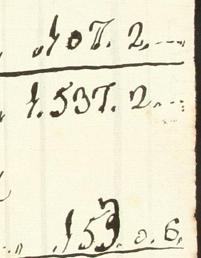 107. 2.
1.537. 2.
153. 0. 6.